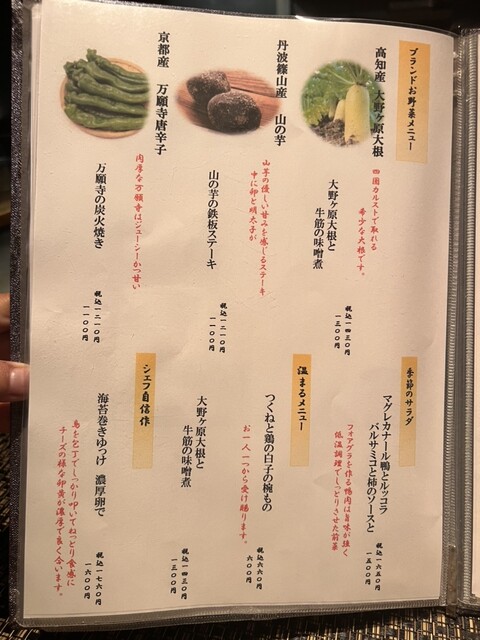 ブランドお野菜メニュー
高知産 大野ヶ原大根
四国カルストで取れる
希少な大根です。
大野ヶ原大根と
牛筋の味噌煮
税込一四三〇円
一三〇〇円
丹波篠山産 山の芋
山芋の優しい甘みを感じるステーキ
中に卵と明太子が
山の芋の鉄板ステーキ
税込一二一〇円
一一〇〇円
京都産 万願寺唐辛子
肉厚な万願寺はジューシーかつ甘い
万願寺の炭火焼き
税込一二一〇円
一一〇〇円
季節のサラダ
マグレカナール鴨とルッコラ
バルサミコと柿のソースと
フォアグラを作る鴨肉は旨味が強く
低温調理でしっとりさせた前菜
税込一六五〇円
一五〇〇円
温まるメニュー
つくねと鶏の白子の椀もの
お一人一つから受け賜ります。
税込六六〇円
六〇〇円
大野ヶ原大根と
牛筋の味噌煮
税込一四三〇円
一三〇〇円
シェフ自信作
海苔巻きゆっけ 濃厚卵で
鳥を包丁でしっかり叩いてねっとり食感に
チーズの様な卵黄が濃厚で良く合います。
税込一七六〇円
一六〇〇円